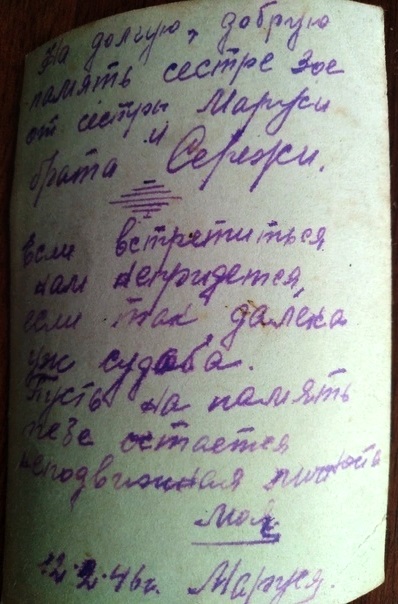 На долгую, добрую
память сестре Зое
от сестры Маруси
и
брата Сережи.
Если встретиться
нам непридется,
если так далека
уж судьба.
Пусть на память
тебе остается
неподвижная личность
моя.
12.2.46г. Маруся.